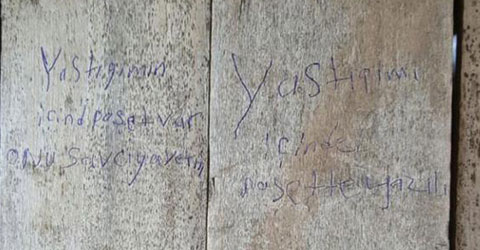 Yastigimin
icind poset var
onu savciyaverin
Yastigimi
içinde
poşette yazılı